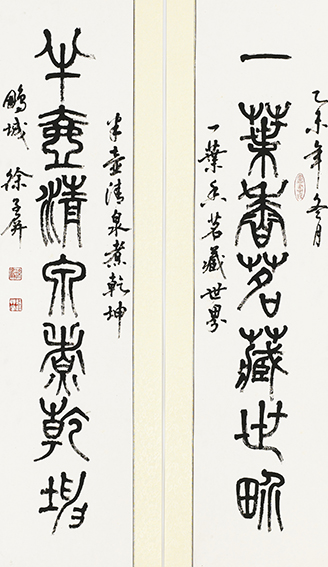 乙未年冬月
一葉香茗藏世界
一葉香茗藏世界
半壺清泉煮乾坤
半壺清泉煮乾坤
鵬城 徐子屏